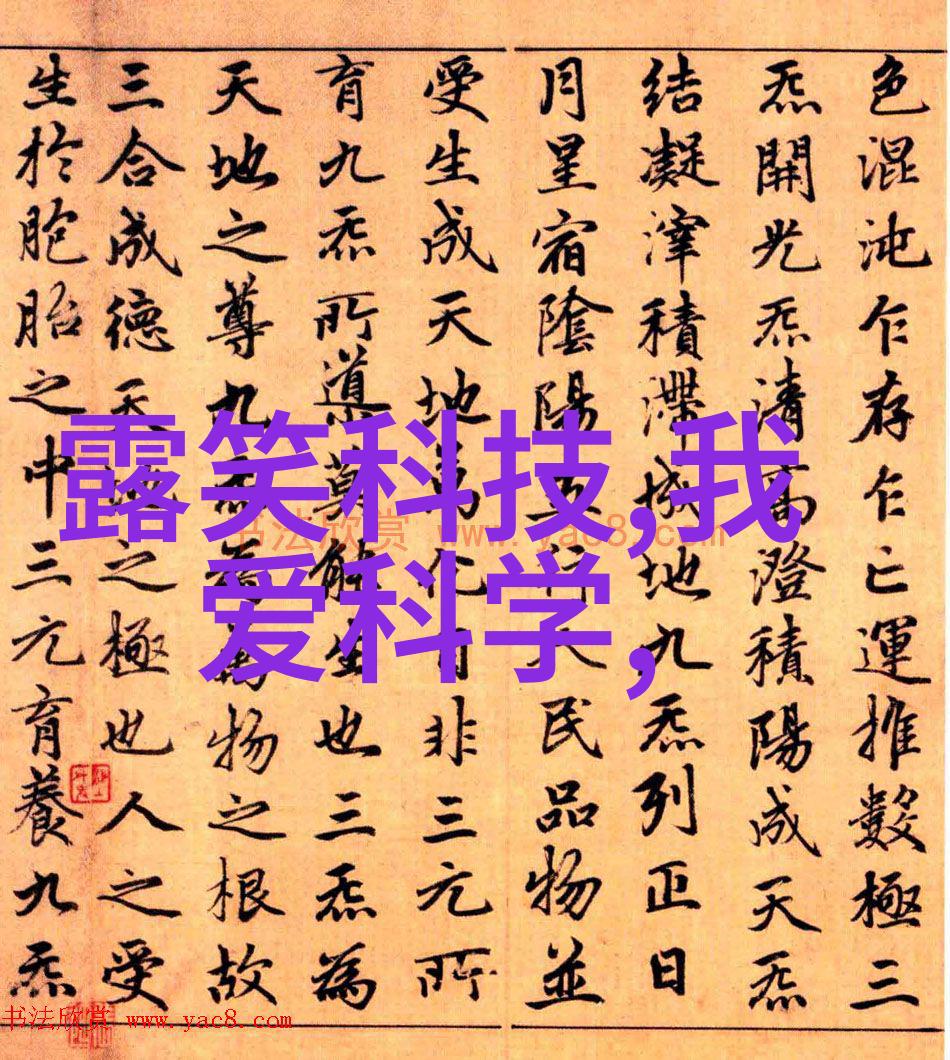 色混沌乍存乍亡運推數極三
炁開光炁清高澄積陽成天炁
結凝滓積滯成地九炁列正日
月星宿陰陽五行人民品物並
受生成天地萬化自非三元所
育九炁所導莫能生也三炁為
天地之尊九炁為萬物之根故
三合成德天地之極也人之受
生於胞胎之中三元育養九炁
露笑科技,我
爱科学,
书法欣赏 www.yac8.com
书法欣赏 www.yac8.com